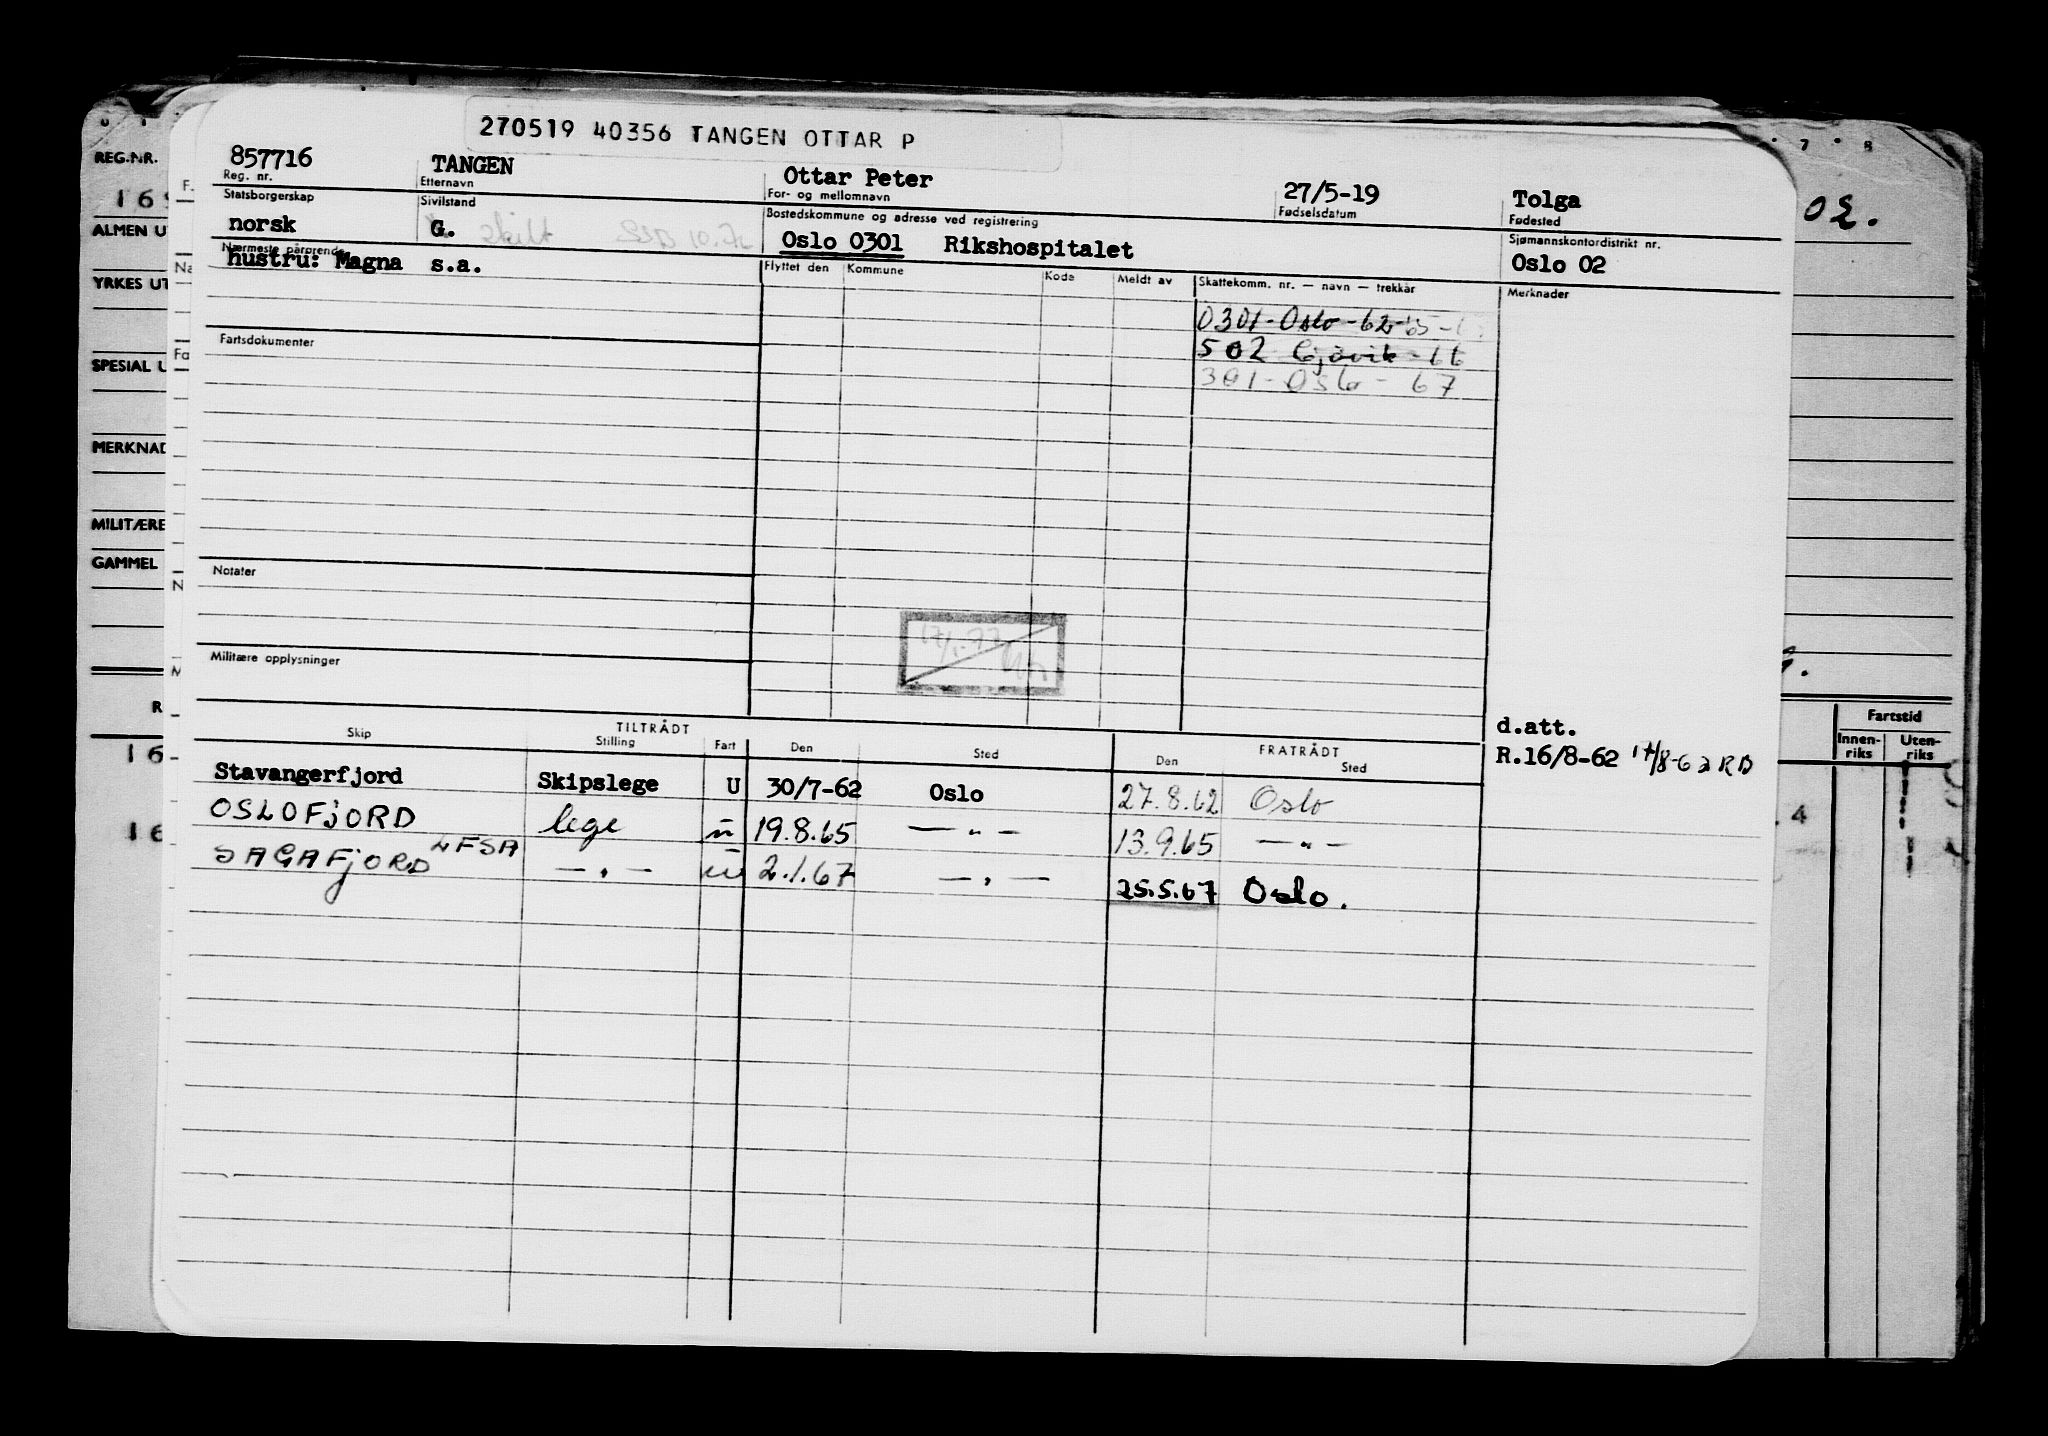 270519 40356 TANGEN OTTAR P
857716 TANGEN Ottar Peter 27/5-19 Tolga
Reg. nr. Etternavn For- og mellomnavn Fødselsdatum Fødested
Statsborgerskap Sivilstand Bostedskommune og adresse ved registrering Sjømannskontordistrikt nr.
norsk G. skilt SSB 10.72 Oslo 0301 Rikshospitalet Oslo 02
Nærmeste pårørende
hustru: Magna s.a.
Flyttet den Kommune Kode Meldt av Skattekomm. nr. — navn — trekkår Merknader
0301-Oslo-62-65-
502 Gjøvik-66
301-Oslo-67
Fartsdokumenter
Notater
Militære opplysninger
TILTRÅDT FRATRÅDT
Skip Stilling Fart Den Sted Den Sted
d.att.
R.16/8-62 17/8-62 RB
Stavangerfjord Skipslege U 30/7-62 Oslo 27.8.62 Oslo
OSLOFJORD lege u 19.8.65 — " — 13.9.65 — " —
SAGAFJORD LFSA — " — u 2.1.67 — " — 25.5.67 Oslo.
REG.-NR.
ALMEN U
YRKES UT
SPESIAL U
MERKNAD
MILITÆRE
GAMMEL
16
16
02.
7 8
Fartstid
Innen-riks Uten-riks
4